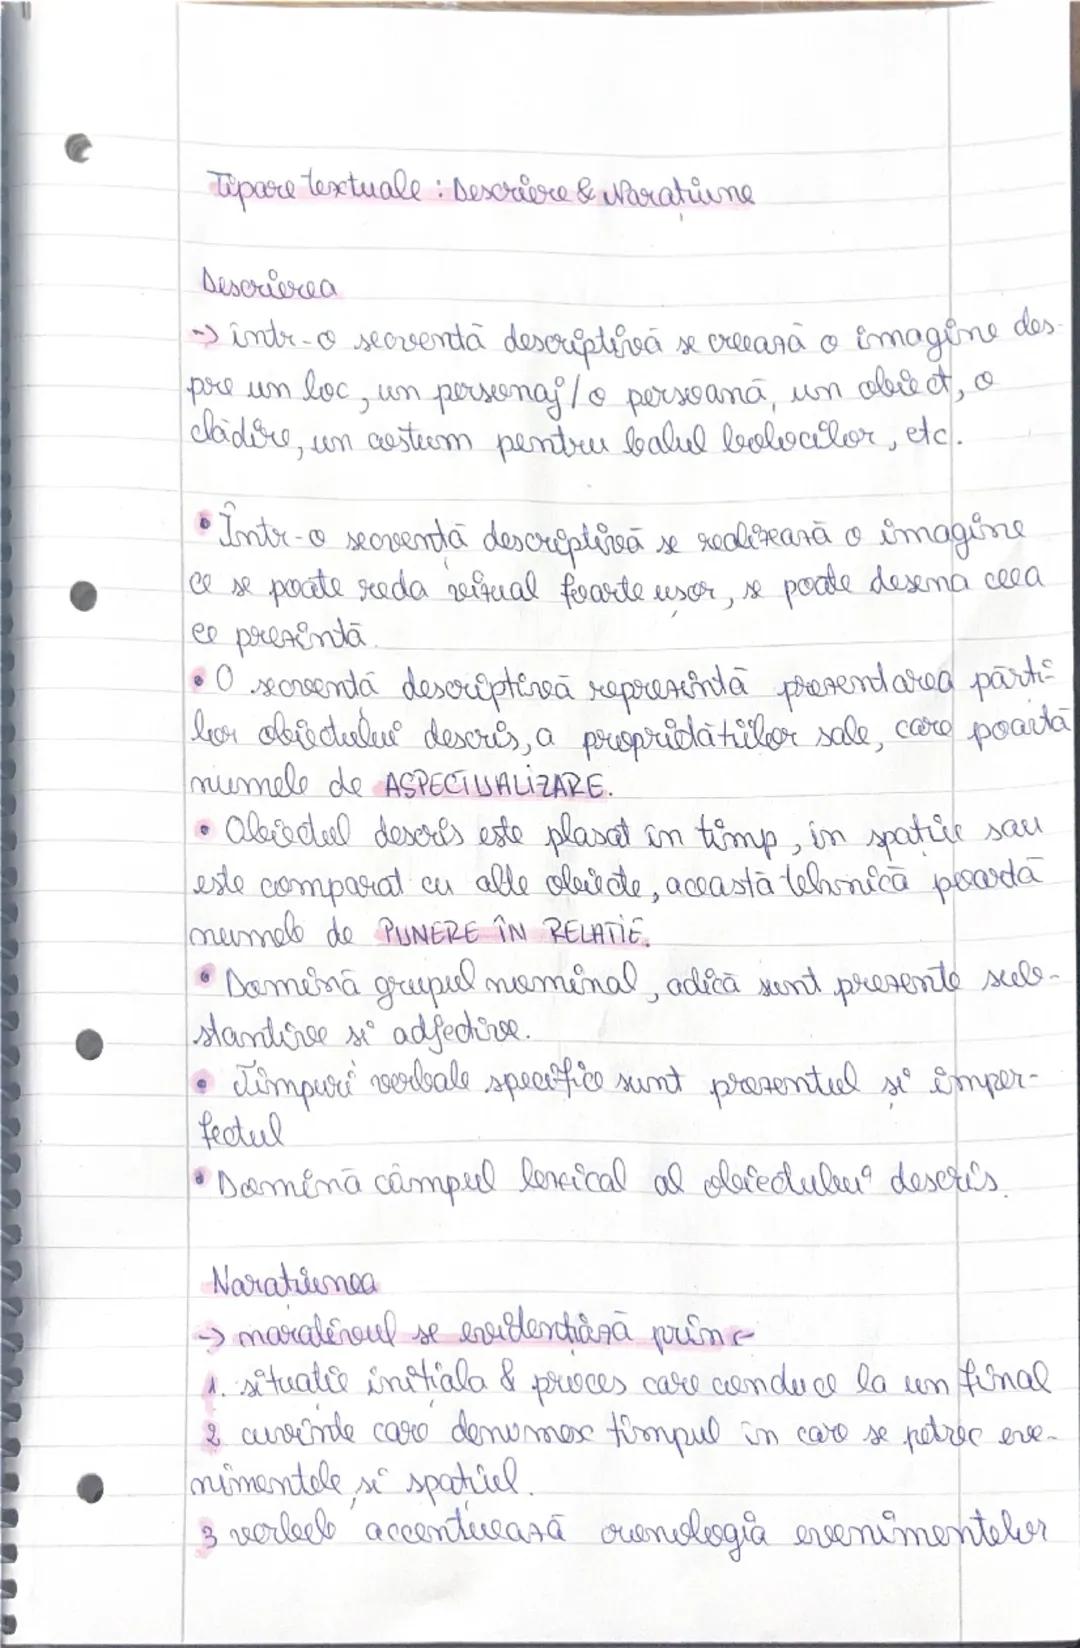 Tipare textuale : Descriere & Narațiune
Descrierea
-> într-o secvență descriptivă se creează o imagine des-
pre un loc, un personaj/o persoană, un obiect, o
clădire, un costum pentru balul bobocilor, etc.
• Într-o secvență descriptivă se realizează o imagine
ce se poate reda vizual foarte ușor, se poate desena ceea
ce prezintă.
• O secvență descriptivă reprezintă prezentarea părți-
lor obiectului descris, a proprietăților sale, care poartă
numele de ASPECTUALIZARE.
• Obiectul descris este plasat în timp, în spațiu sau
este comparat cu alte obiecte, această tehnică poartă
numele de PUNERE ÎN RELAȚIE.
• Domină grupul nominal, adică sunt prezente sub-
stantive și adjective.
• Timpuri verbale specifice sunt prezentul și imper-
fectul
• Domină câmpul lexical al obiectului descris.
Narațiunea
-> narativul se evidențiază prin:
1. situație inițiala & proces care conduce la un final
2 cuvinte care denumesc timpul în care se petrec eve-
nimentele și spațiul.
3 verbele accentuează cronologia evenimentelor